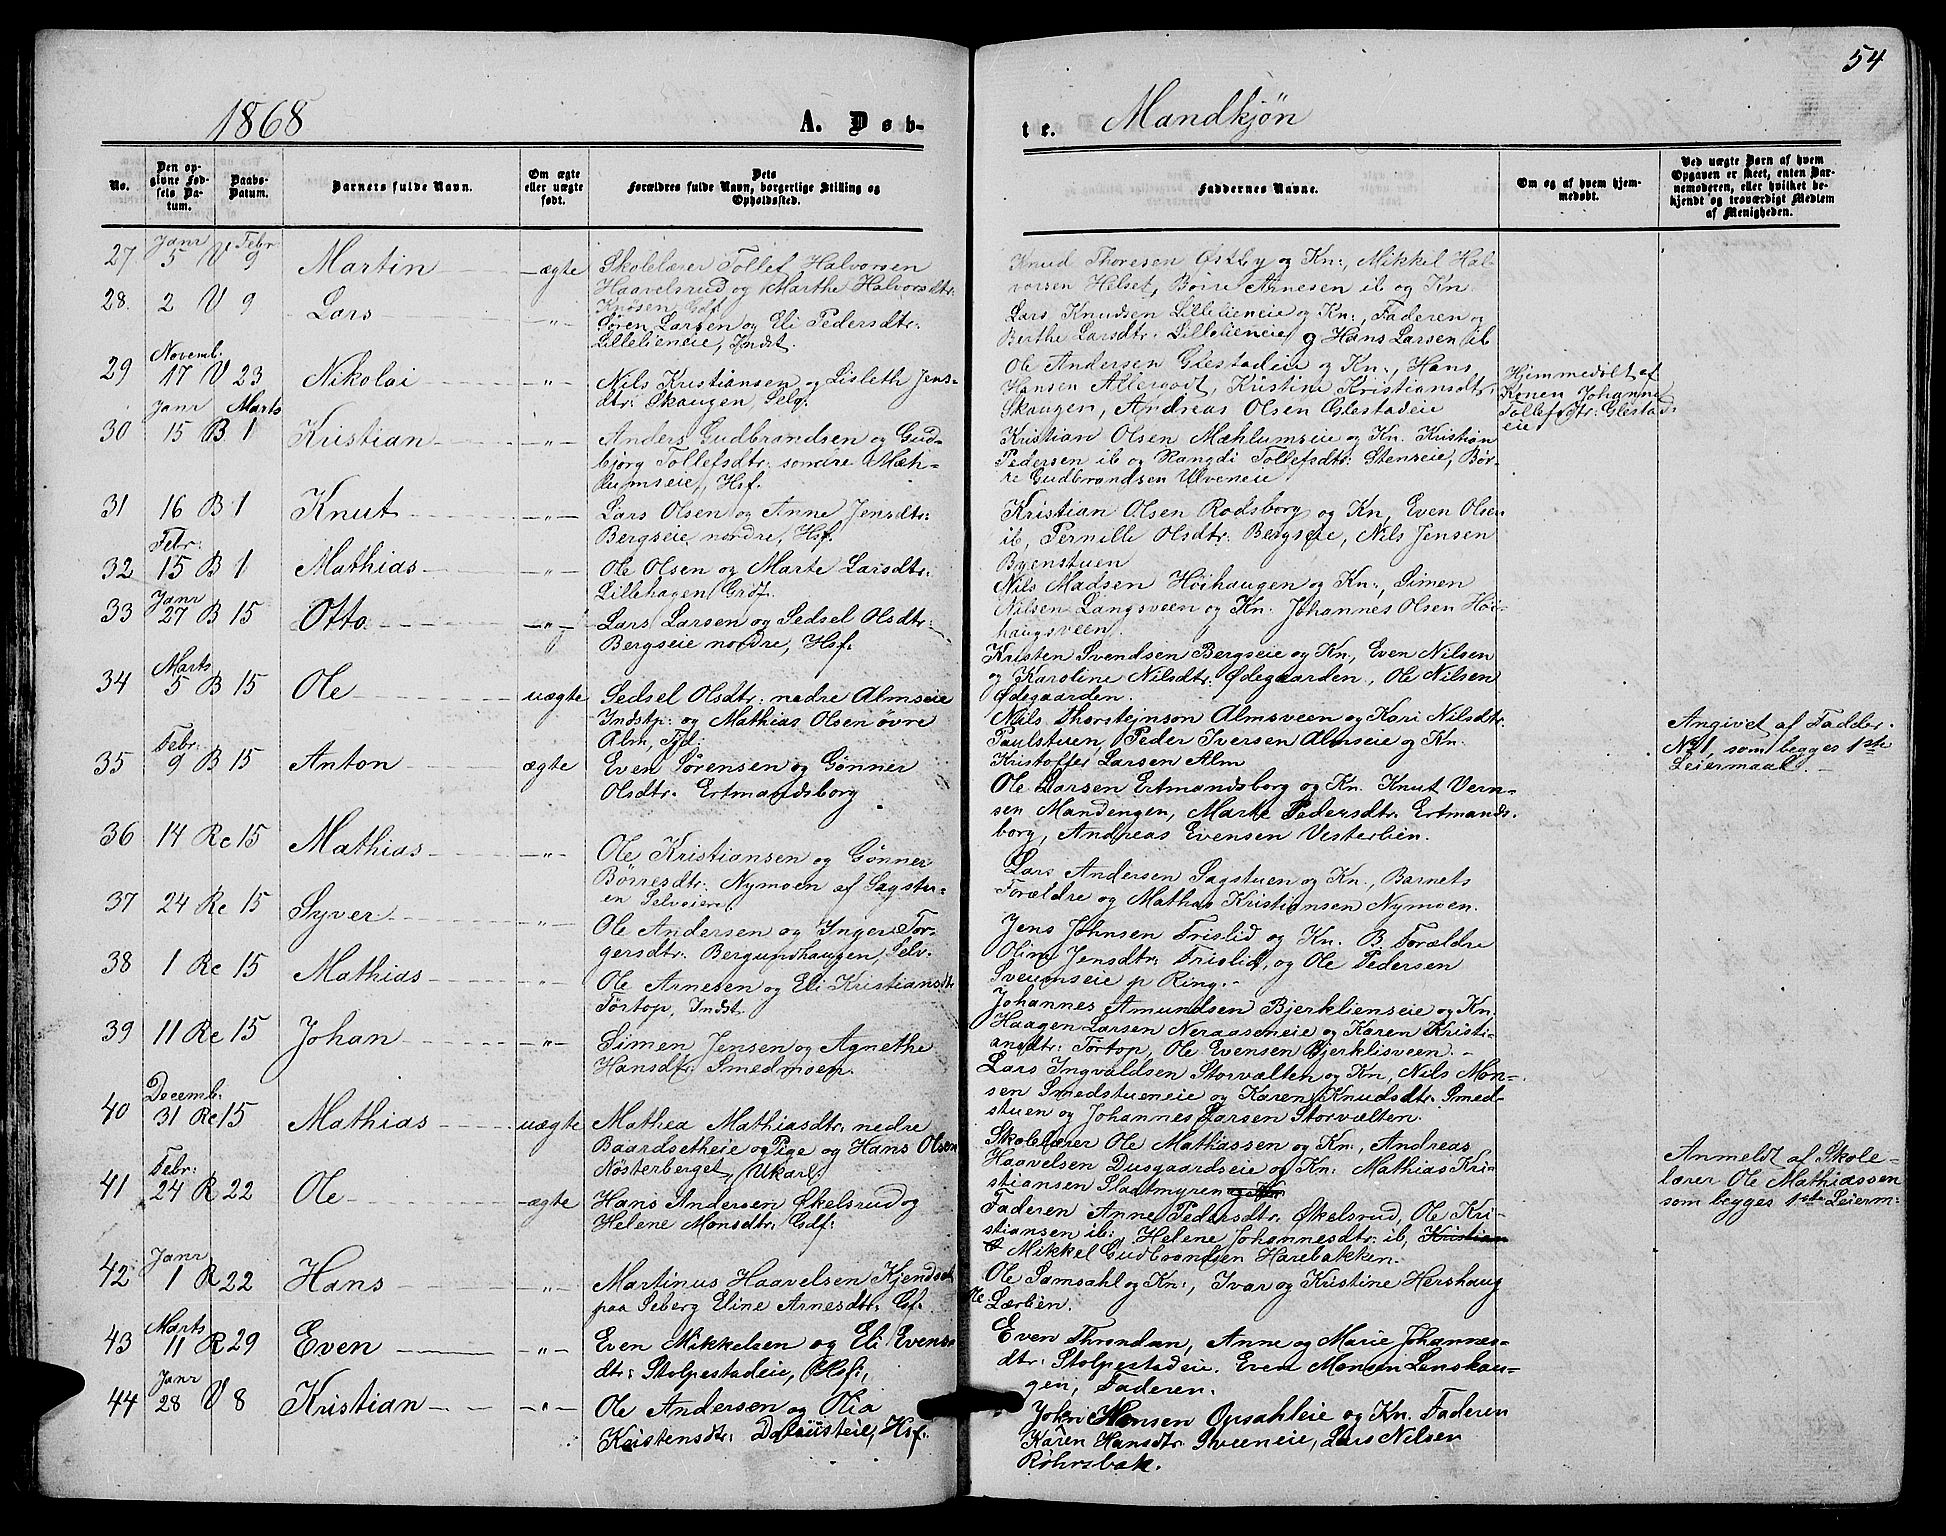 54
1868 A. Døb-
te. Mandkjøn
No.
Den op-
givne Fød-
sels Da-
tum.
Daabs-
Datum.
Barnets fulde Navn.
Om ægte
eller uægte
født.
Dets
Forældres fulde Navn, borgerlige Stilling og
Opholdssted.
Faddernes Navne.
Om og af hvem hjem-
medøbt.
Ved uægte Børn af hvem
Opgaven er skeet, enten Bar-
nemoderen, eller hvilket be-
kjendt og troværdigt Medlem
af Menigheden.
Janr Febr:
27 5 V 9 Martin ægte
Skolelærer Tollef Halvorsen
Haavelsrud og Marthe Halvorsdtr:
Knøsen Gdf
Knud Thoresen Østby og Kn:, Mikkel Hal-
vorsen Helset, Børre Arnesen ib og Kn
28. 2 V 9 Lars -"-
Søren Larsen og Eli Pedersdtr:
Lillelieneie, Indst.
Lars Knudsen Lillelieneie og Kn:, Faderen og
Berthe Larsdtr: Lillelieneie og Hans Larsen ib
Novemb.
29 17 V 23 Nikolai -"-
Nils Kristiansen og Lisleth Jens-
dtr: Skaugen, Selg:
Ole Andersen Glestadeie og Kn:, Hans
Hansen Allergodt, Kristine Kristiansdtr,
Skaugen, Andreas Olsen Glestadeie
Hjemmedøbt af
Konen Johanne
Tollefsdtr: Glestad-
eie
Janr Marts
30 15 B 1 Kristian -"-
Anders Gudbrandsen og Gud-
bjørg Tollefsdtr: søndre Mæh-
lumseie, Hsf.
Kristian Olsen Mæhlumseie og Kn. Kristian
Pedersen ib og Rangdi Tollefsdtr: Stenseie, Bør-
re Gudbrandsen Ulveneie
31 16 B 1 Knut -"-
Lars Olsen og Anne Jensdtr:
Bergseie nordre, Hsf.
Kristian Olsen Rodsborg og Kn, Even Olsen
ib, Pernille Olsdtr: Bergseie, Nils Jensen
Byenstuen
Febr:
32 15 B 1 Mathias -"-
Ole Olsen og Marte Larsdtr:
Lillehagen,
Nils Madsen Høihaugen og Kn:, Simen
Nilsen Langsveen og Kn: Johannes Olsen Høi-
haugsveen.
Janr
33 27 B 15 Otto -"-
Lars Larsen og Sedsel Olsdtr:
Bergseie nordre, Hsf:
Kristen Svendsen Bergseie og Kn, Even Nilsen
og Karoline Nilsdtr: Ødegaarden, Ole Nilsen
Ødegaarden.
Marts
34 5 B 15 Ole uægte
Sedsel Olsdtr: nedre Almseie
Indstp: og Mathias Olsen øvre
Alm,
Nils Thorstejnson Almsveen og Kari Nilsdtr.
Paulstuen, Peder Iversen Almseie og Kn.
Kristoffer Larsen Alm
Angivet af Fadder
No 1, som begges 1ste
Leiermaal.
Febr:
35 9 B 15 Anton ægte
Even Sørensen og Gønner
Olsdtr. Ertmandsborg
Ole Larsen Ertmandsborg og Kn. Knut Vern-
sen Mandengen, Marte Pedersdtr: Ertmands-
borg, Andreas Evensen Vesterlien.
36 14 Re 15 Mathias -"-
Ole Kristiansen og Gønner
Børresdtr: Nymoen af Sagstu-
en Selveiere
Lars Andersen Sagstuen og Kn., Barnets
Forældre og Mathas Kristiansen Nymoen.
37 24 Re 15 Syver -"-
Ole Andersen og Inger Tor-
gersdtr: Bergundhaugen, Selv:
Jens Johnsen Frislid og Kn. B. Forældre
Oline Jensdtr: Frislid, og Ole Pedersen
Sveumseie p Ring.
38 1 Re 15 Mathias -"-
Ole Arnesen og Eli Kristiansdtr
Tørtop, Indst
Johannes Amundsen Bjerklienseie og Kn.
Haagen Larsen Neraaseneie og Karen Kristi-
ansdtr: Tørtop, Ole Evensen Bjerklisveen.
39 11 Re 15 Johan -"-
Simen Jensen og Agnethe
Hansdtr: Smedmoen.
Lars Ingvaldsen Storvælten og Kn, Nils Mon-
sen Smedstueneie og Karen Knudsdtr: Smed-
stuen og Johannes Larsen Storvælten.
Decemb:
40 31 Re 15 Mathias uægte
Mathea Mathiasdtr: nedre
Baardsetheie og Pige og Hans Olsen
Nøsterberget, (Ukarl)
Skolelærer Ole Mathiassen og Kn, Andreas
Haavelsen Dusgaardseie og Kn: Mathias Kri-
stiansen Sladtmyren og Kn
Anmeldt af Skole-
lærer Ole Mathiassen
som begges 1ste Leierm:
Febr:
41 24 R 22 Ole ægte
Hans Andersen Økelsrud og
Helene Monsdtr: Gdf:
Faderen Anne Pedersdtr: Økelsrud, Ole Kri-
stiansen ib: Helene Johannesdtr: ib, Kristian
Mikkel Gudbrandsen Harebakken.
Janr
42 1 R 22 Hans -"-
Martinus Haavelsen Kjendset
paa Seberg Eline Arnesdtr: Gsf.
Ole Samsahl og Kn:, Ivar og Kristine Hershaug
Ole Lærlien.
Marts
43 11 R 29 Even -"-
Even Mikkelsen og Eli Evens-
dtr: Stolpestadeie, Hsf:,
Even Throndsen, Anne og Marie Johannes-
dtr: Stolpestadeie. Even Monsen Lønshau-
gen, Faderen.
Janr
44 28 V 8 Kristian -"-
Ole Andersen og Olia
Kristensdtr: Dalsusteie, Hsf.
John Hansen Opsahleie og Kn. Faderen
Karen Hansdtr. Sveeneie, Lars Nilsen
Røhrsbak.